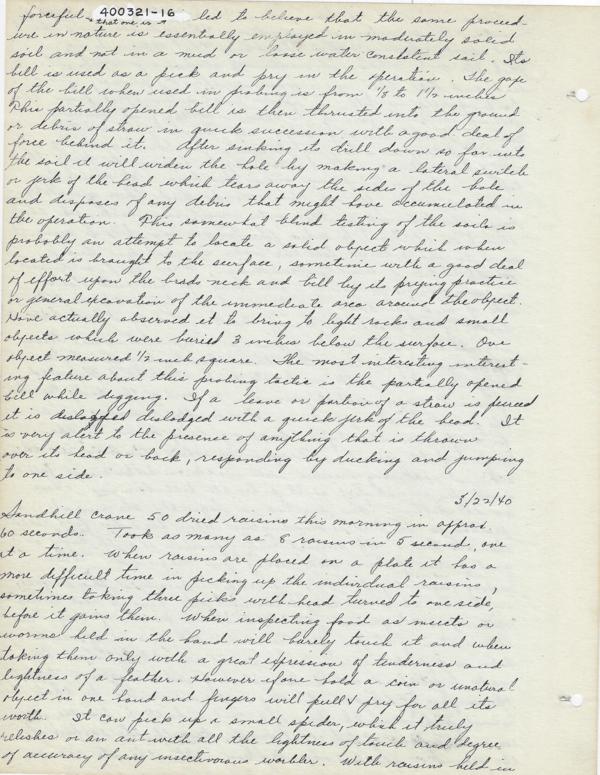 400321-16
forceful that one is led to believe that the same proceed-
ure in nature is essentially employed in moderately solid
soil and not in a mud or loose water consistent soil. Its
bill is used as a pick and pry in the operation. The gape
of the bill when used in probing is from 1/8 to 1 1/2 inches
This partially opened bill is then thrusted into the ground
or debris of straw in quick succession with a good deal of
force behind it. After sinking its drill down so far into
the soil it will widen the hole by making a lateral switch
or jerk of the head which tears away the sides of the hole
and disposes of any debris that might have accumulated in
the operation. This somewhat blind testing of the soils is
probably an attempt to locate a solid object which when
located is brought to the surface, sometime with a good deal
of effort upon the birds neck and bill by its prying practice
or general excavation of the immediate area around the object.
Have actually observed it to bring to light rocks and small
objects which were buried 3 inches below the surface. One
object measured 1/2 inch square. The most interesting interest-
ing feature about this probing tactic is the partially opened
bill while digging. If a leave or portion of a straw is pierced
it is dislogged dislodged with a quick jerk of the head. It
is very alert to the presence of anything that is thrown
over its head or back, responding by ducking and jumping
to one side.
3/22/40
Sandhill crane 50 dried raisins this morning in approx.
60 seconds. Took as many as 8 raisins in 5 second, one
at a time. When raisins are placed on a plate it has a
more difficult time in picking up the individual raisins,
sometimes taking three picks with head turned to one side,
before it gains them. When inspecting food as insects or
worms held in the hand will barely touch it and when
taking them only with a great expression of tenderness and
lightness of a feather. However if one hold a coin or unatural
object in one hand and fingers will pull & pry for all its
worth. It can pick up a small spider, which it truly
relishes or an ant with all the lightness of touch and degree
of accuracy of any insectivorous warbler. With raisins held in